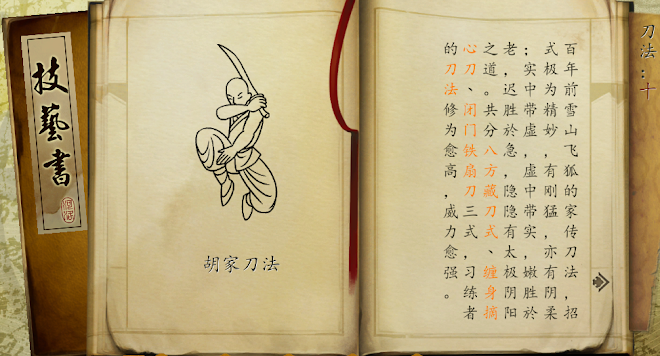 技藝書
胡家刀法
百年前雪山飞狐的家传刀法，招
式极为精妙，有刚猛，亦有阴柔
；实中带虚，虚中带实，嫩胜於
老，迟胜於急，隐隐有太极阴阳
之道。共分八方藏刀式、缠身摘
心刀、闭门铁扇刀三式，习练者
的刀法修为愈高，威力愈强。
刀法：十